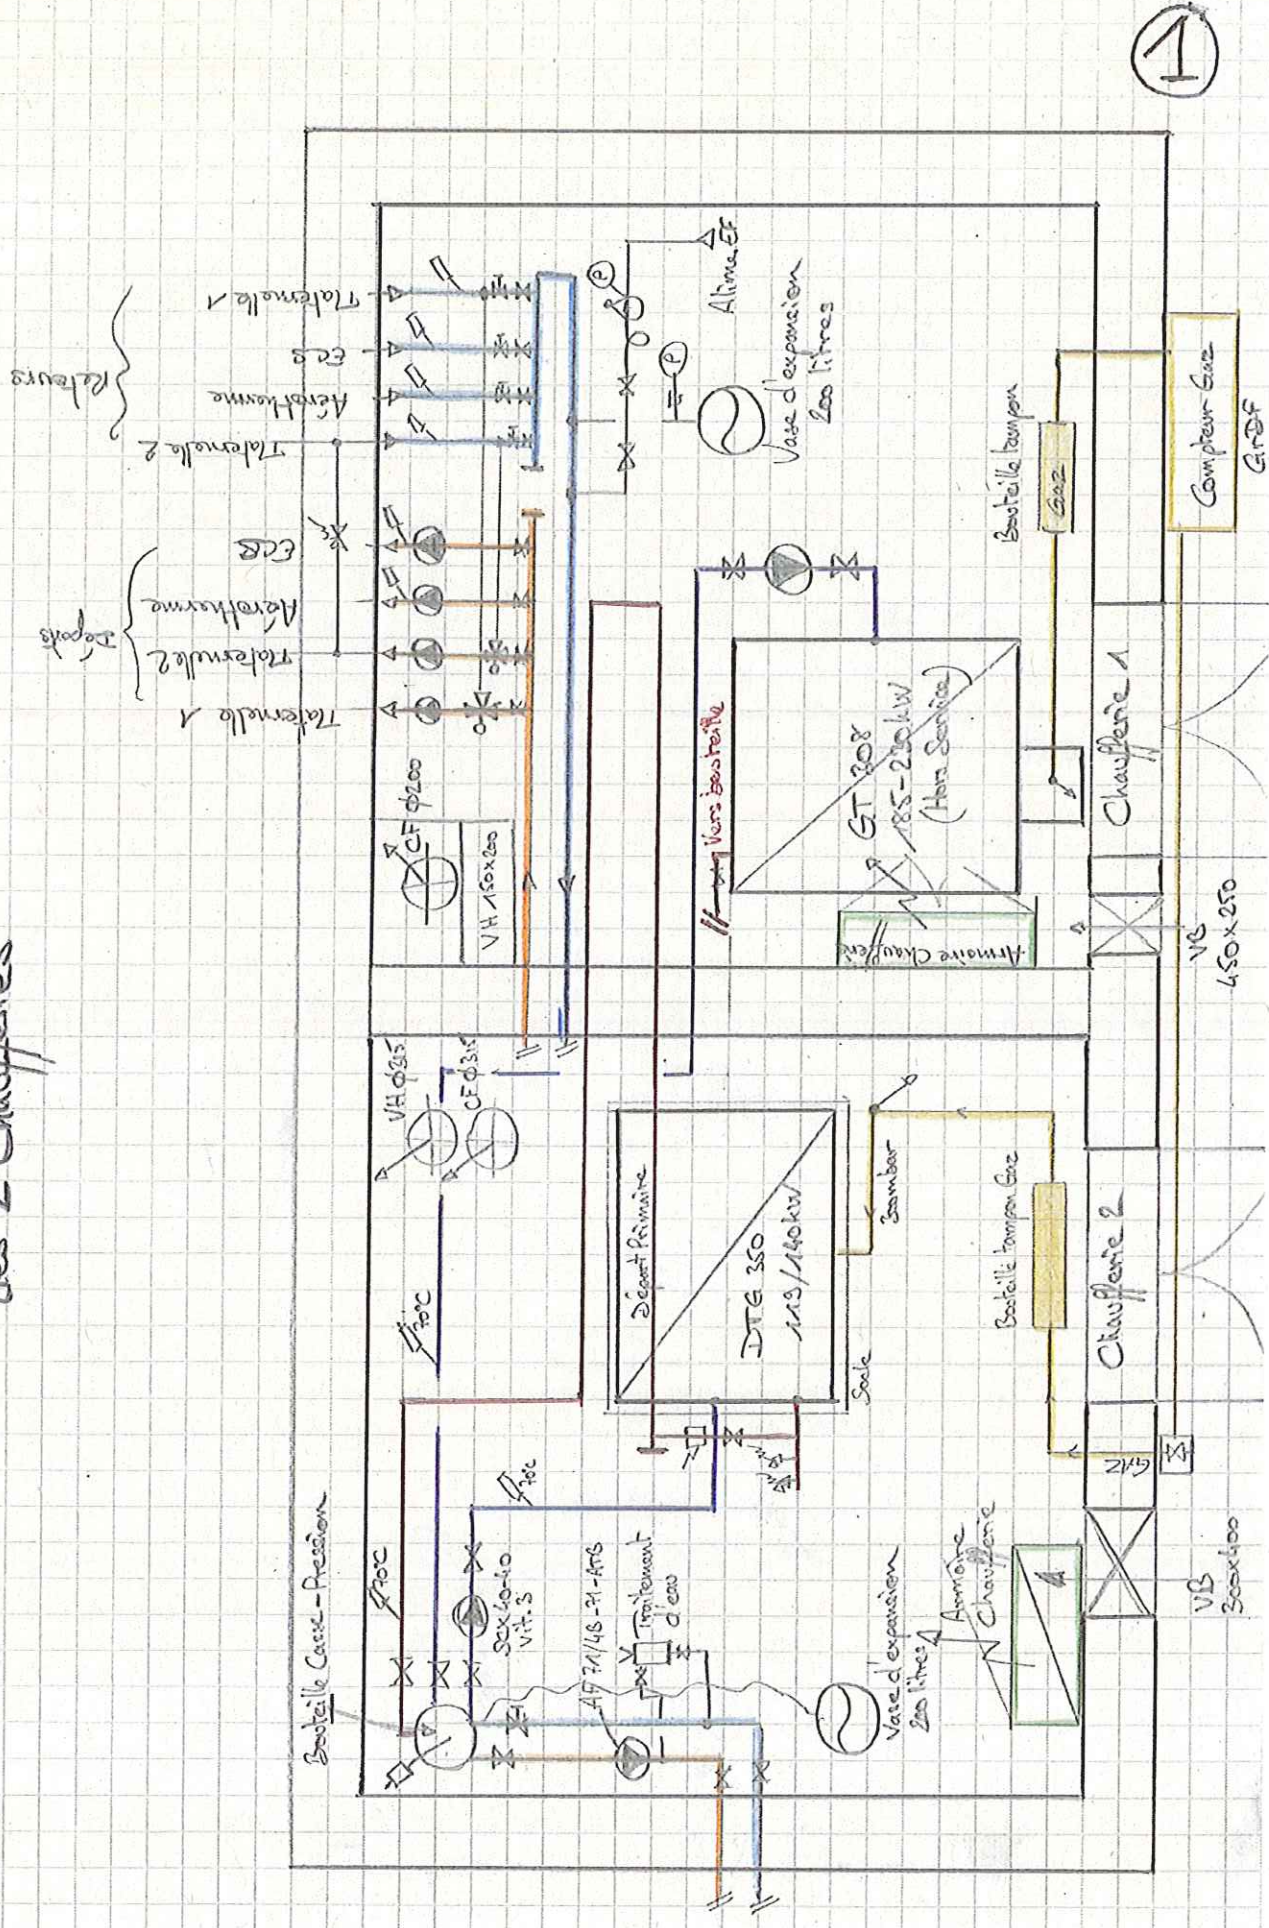 1
des 2 Chaufferies
Retours
Maternelle 1
ECS
Aérotherme
Maternelle 2
Départs
ECS
Aérotherme
Maternelle 2
Maternelle 1
P
P
Alim. EF
Vase d'expansion
200 litres
Bouteille tampon
Gaz
Compteur Gaz
GrDF
CF Φ200
VH 150x200
Vers bouteille
GT 308
185-230kW
(Hors Service)
Armoire Chaufferie
Chaufferie 1
VB
450x250
VH Φ315
CF Φ315
70°C
Départ Primaire
DTG 350
113/140kW
Socle
300mbar
Bouteille tampon Gaz
Chaufferie 2
GAZ
Bouteille Casse-Pression
70°C
70°C
SCX 40-40
Vit. 3
Traitement
d'eau
Vase d'expansion
200 litres
Armoire
Chaufferie
VB
300x400